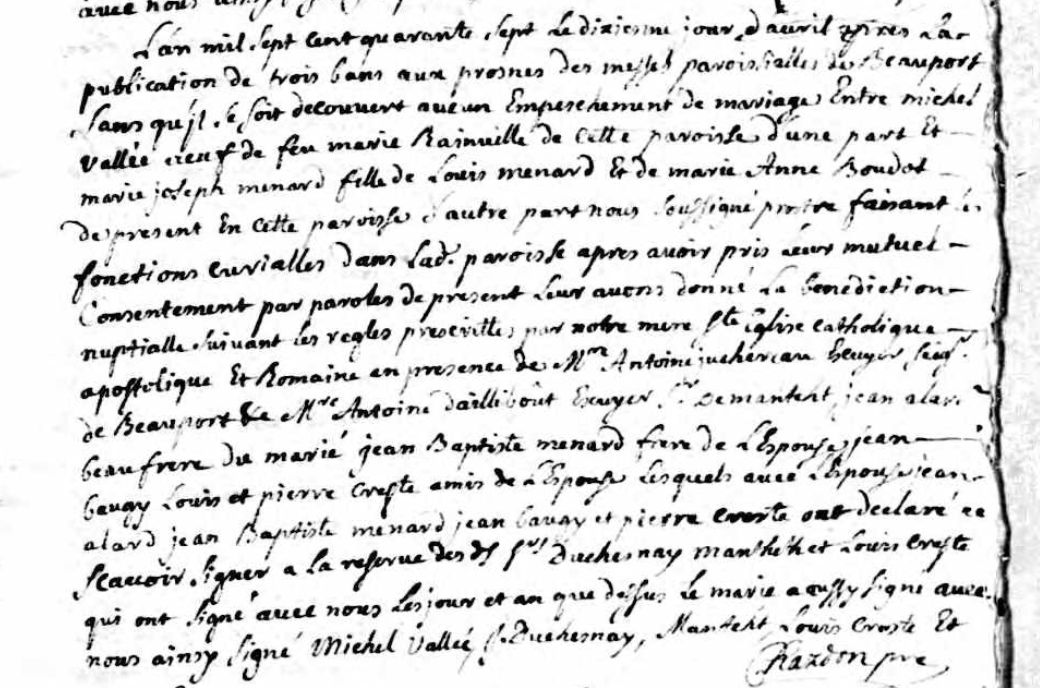 avec nous
L'an mil sept cent quarante sept le dixiesme jour d'avril apres la
publication de trois bans aux prosnes des messes paroissialles de Beauport
sans qu'jl se soit decouvert aucun Empeschement de mariage Entre michel
Vallée veuf de feu marie Rainville de cette paroisse d'une part Et
marie joseph menard fille de Louis menard Et de marie Anne Boudot
de present En cette paroisse d'autre part nous soussigné prstre faisant les
fonctions curialles dans lad. paroisse apres avoir pris leur mutuel
Consentement par paroles de present leur avons donné la benediction
nuptialle suivant les regles prescrittes par notre mere Ste Eglise catholique
apostolique Et Romaine en presence de Mre Antoine juchereau Ecuyer seigr
de Beauport & de Mre Antoine daillibout Ecuyer Sr De manteht jean alard
beaufrere du marié jean Baptiste menard frere de L'Espouse jean
baugy Louis et pierre Creste amis de L'Espouse Lesquels avec L'Espouse jean
alard jean Baptiste menard jean baugy et pierre creste ont declaré ne
scavoir signer a la reserve des ds Srs Duchesnay Mantheht et Louis Creste
qui ont signé avec nous les jour et an que dessus le marié a aussy signé avec
nous ainsy signé Michel Vallée, Duchesnay, Manteht Louis Creste Et
Chardon pre